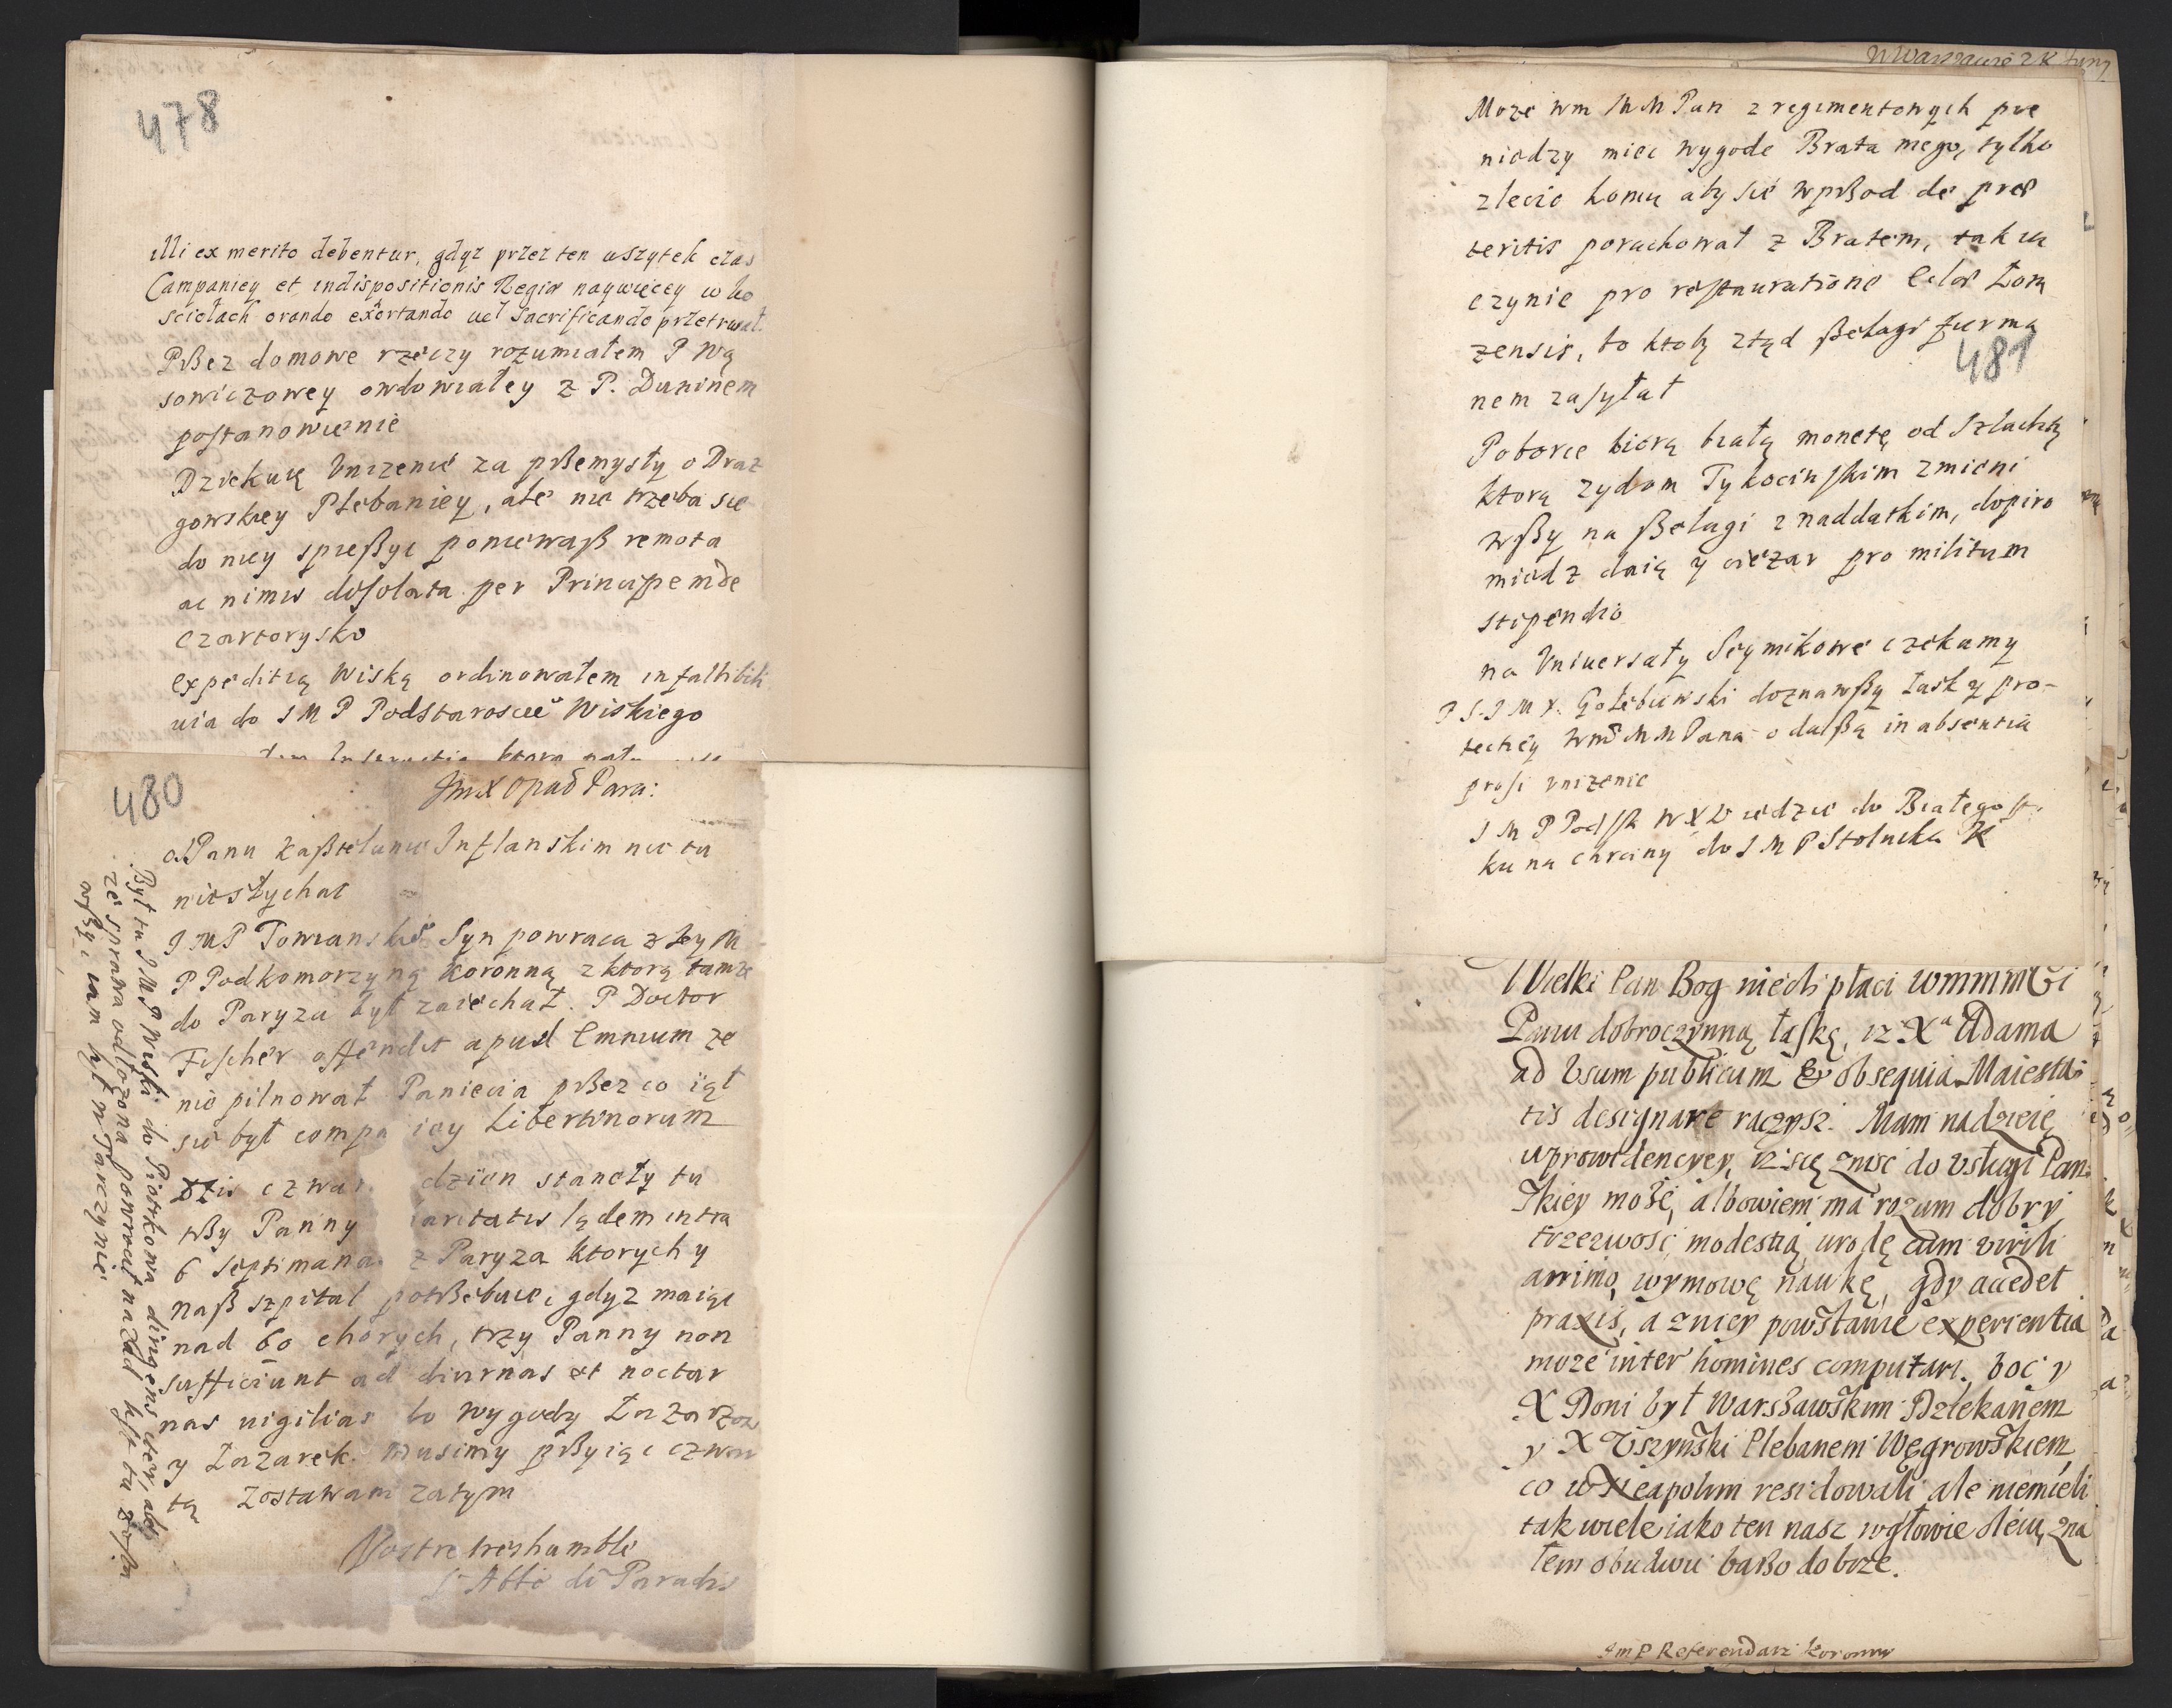 478
illi ex merito debentur, gdyz przez ten wszytek czas
Campaniey et indispositionis Regiæ naywięcey w ko
sciołach orando exortando uel Sacrificando przetrwał.
Pßez domowe rzeczy rozumiałem P Wą
sowiczowey owdowiałey z P. Duninem
postanowienie
Dziekuię Vnizenie za pßemysły o Draz
gowskiey Plebaniey, ale nie trzeba sie
do niey spießyc poniewaß remota
ac nimis desolata per Principem de
Czartorysko
Expeditią Wiską ordinowałem infallibili
uia do I M P Podstarosciē Wiskiego
480
Jmx Opad Para:
o Panu Kaßtelanie Inflanskim nic tu
nie słychac
I M P Towianski Syn powraca z Iey M
P Podkomorzyną Koronną z ktorą tamze
do Paryza był zaiechał. P Doctor
Fischer offendit apud Emnium ze
nie pilnował Paniecia pßez co iął
sie był compa iey Libertinorum
Dzis czwar dzien staneły tu
tßy Panny aritatis lądem intra
6 septimanas z Paryza ktorych y
naß szpital potßebuie, gdyz maiąc
nad 60 chorych, trzy Panny non
sufficiunt ad diurnas et noctur
nas uigilias to wygody Łazarzow
y Łazarek. musimy pßyiąc czwar
tą Zostawam zatym
Vostre tres humble
l'Abbé de Paradis
Był tu I M P Wiski do Piotrkowa dirigens iter, ale
ze sprawa odłozona powrocił nazad
481
W Warszawie 28 Juny
Moze wm M M Pan z regimentowych pie
niedzy miec wygode Brata mego, tylko
zlecic komu aby sie wpßod de præ
teritis porachował z Bratem, tak u
czynie pro restauratione Eclæ Łom
zensis, bo ktoby ztąd ßelagi furma
nem zasyłał
Poborce biorą białą monetę od Szlachty
ktorą zydom Tykocinskim zmieni
wßy na ßelagi z naddatkim, dopiro
miedz daią y ciezar pro militum
stipendio
na Vniuersały Seymikowe czekamy
P S. I M X. Gołebiewski doznawßy łaski y pro-
tectiey Wm M M Pana o dalßą in absentia
prosi vnizenie
I M P Podsk W X L iedzie do Białegost
ku na chrciny do I M P Stolnika K
Wielki Pan Bog niech płaci wmmmci
Panu dobroczynną łaskę, iz Xa Adama
ad Vsum publicum & obsequia Maiesta-
tis designare raczysz. Mam nadzieię
w prowidencyey, iz się znisc do vsługi Pan-
skiey może, albowiem ma rozum dobry
trzezwosc modestią urodę cum virili
animo, wymowę naukę, gdy accedet
praxis, a z niey powstanie experientia
moze inter homines computari. boc y
X Doni był Warszawskim Dziekanem
y X Uszynski Plebanem Węgrowskiem,
co w Neapolim residowali ale niemieli
tak wiele iako ten nasz w głowie oleiu, zna
łem obudwu barzo dobrze.
Jm P Referendarz Koronny